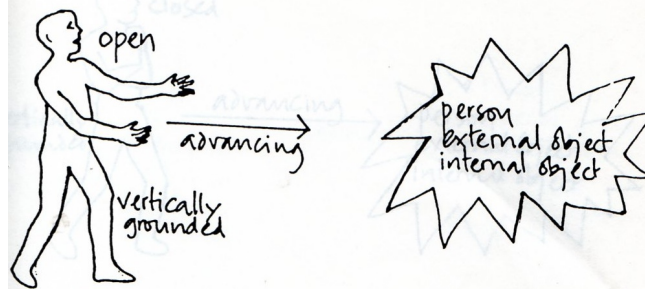 open
advancing
vertically
grounded
person
external object
internal object